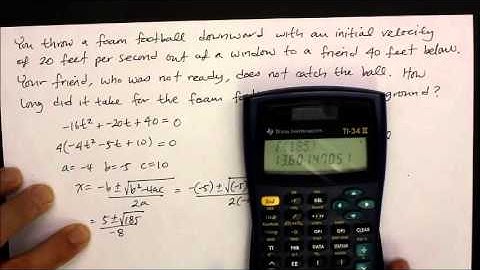 You throw a foam football downward with an initial velocity
of 20 feet per second out of a window to a friend 40 feet below.
Your friend, who was not ready, does not catch the ball. How
long did it take for the foam ground?
-16t² + -20t + 40 = 0
4(-4t² - 5t + 10) = 0
a = -4 b = -5 c = 10
x = -b ± √b²-4ac / 2a = -(-5) ± √(-5) / 2(-
= 5 ± √185 / -8
TEXAS INSTRUMENTS TI-34 II
√(185)
13.60147051